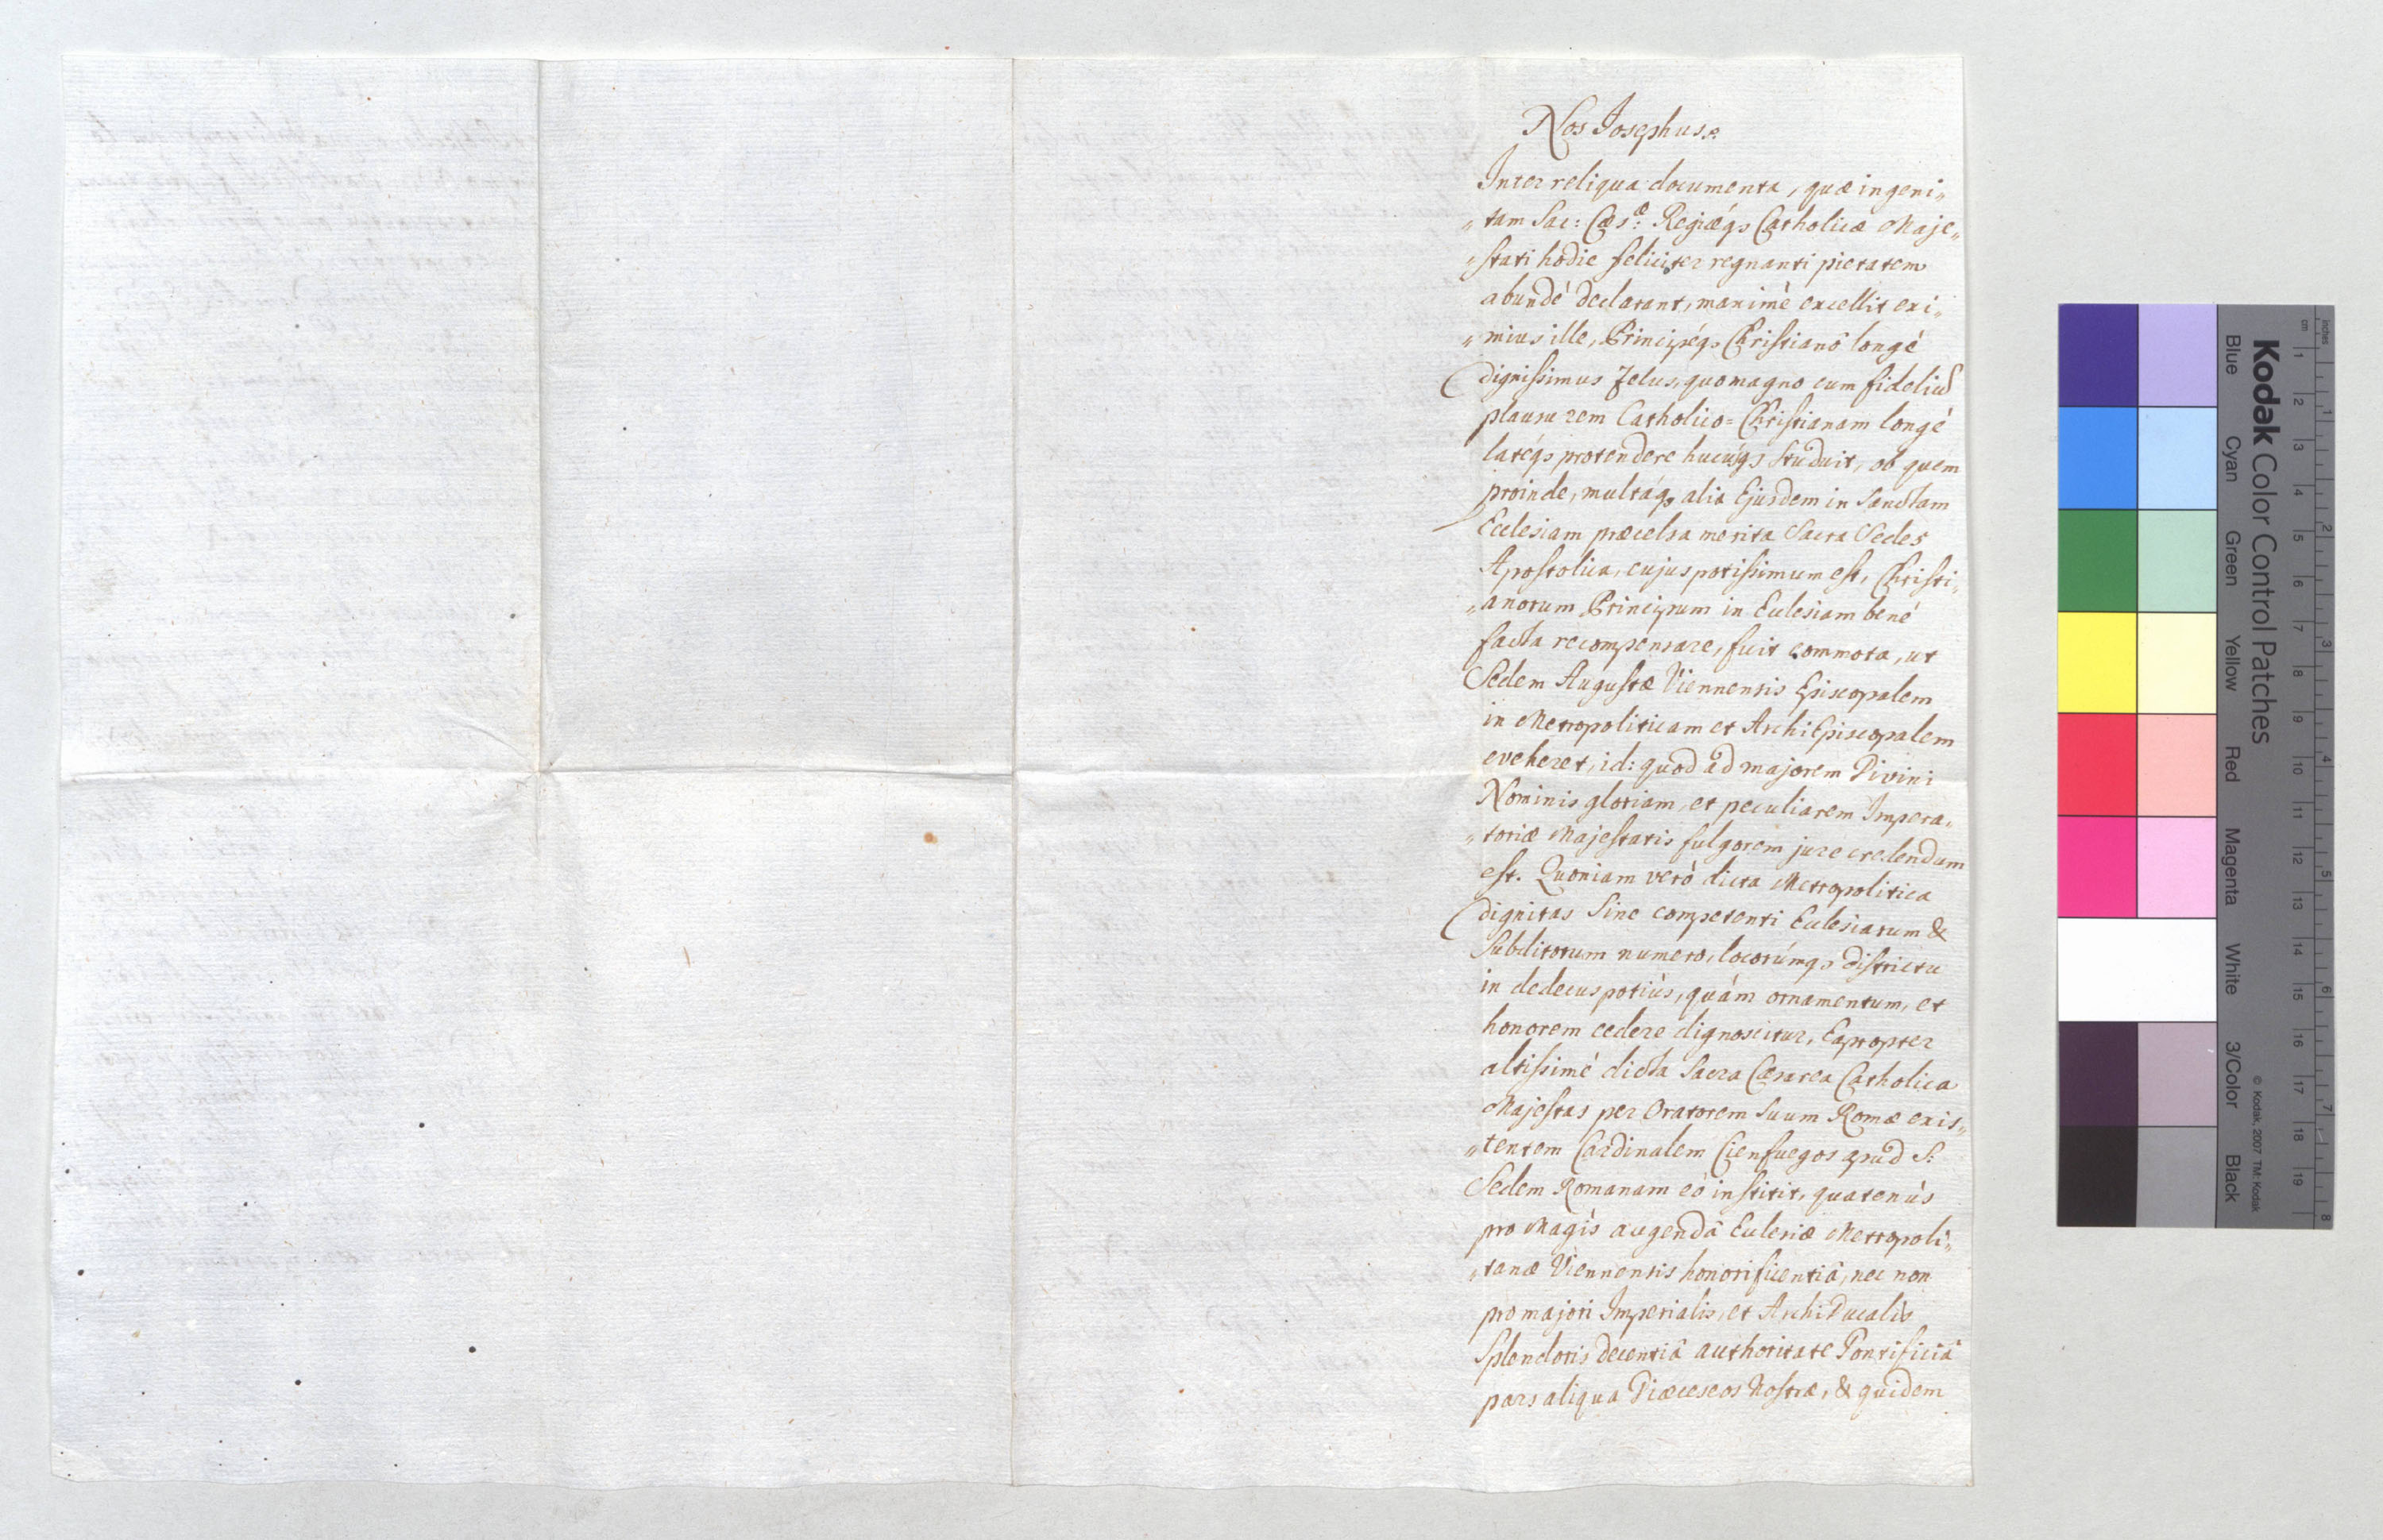 Nos Josephus
Inter reliqua documenta, quæ ingeni„
„tam Sac: Cæs:æ Regiæq3 Catholicæ Maje„
„stati hodie feliciter regnanti pietatem
abundé declarant, maximè excellit exi„
„mius ille, Principéq3 Christianô longé
dignissimus Zelus, quo magno cum fideliũ
plausu rem Catholico=Christianam longé
latéq3 protendere hucúsq3 studuit, ob quem
proinde, multáq3 alia Ejusdem in Sanctam
Ecclesiam præcelsa merita Sacra Sedes
Apostolica, cujus potissimum est, Christi„
„anorum Principum in Ecclesiam bené
facta recompensare, fuit commota, ut
Sedem Augustæ Viennensis Episcopalem
in Metropoliticam et ArchiEpiscopalem
eveheret, id: quod ad majorem Divini
Nominis gloriam, et peculiarem Impera„
„toriæ Majestatis fulgorem jure credendum
est. Quoniam verò dicta Metropolitica
dignitas Sine competenti Ecclesiarum &
Subditorum numero, locorúmq3 districtu
in dedecus potiùs, quám ornamentum, et
honorem cedere dignoscitur, Eapropter
altissimé dicta Sacra Cæsarea Catholica
Majestas per Oratorem Suum Romæ exis„
„tentem Cardinalem Cienfuegos apud S:
Sedem Romanam eò institit, quatenùs
pro Magìs augendâ Ecclesiæ Metropoli„
„tanæ Viennensis honorificentiâ, nec non
pro majori Imperialis, et ArchiDucalis
Splendoris decentiâ authoritate Pontificiâ
pars aliqua Diœceseos Nostræ, & quidem
Kodak Color Control Patches
Blue Cyan Green Yellow Red Magenta White 3/Color Black
© Kodak, 2007 TM: Kodak
inches 1 2 3 4 5 6 7 8
cm 1 2 3 4 5 6 7 8 9 10 11 12 13 14 15 16 17 18 19